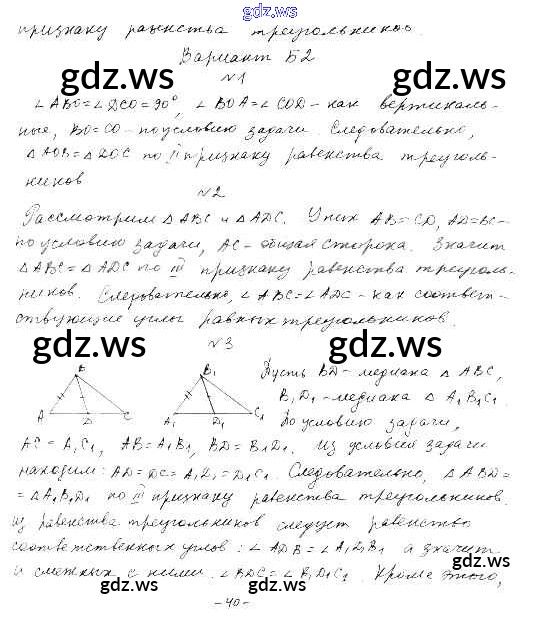 gdz.ws
признаку равенства треугольников.
Вариант Б2
gdz.ws gdz.ws
№1
∠ABO=∠DCO=90°, ∠BOA=∠COD-как вертикаль-
ные, BO=CO-по условию задачи. Следовательно,
△AOB=△DOC по II признаку равенства треуголь-
ников
№2
Рассмотрим △ABC и △ADC. У них AB=CD, AD=BC-
по условию задачи, AC-общая сторона. Значит
△ABC=△ADC по III признаку равенства треуголь-
ников. Следовательно, ∠ABC=∠ADC-как соответ-
ствующие углы равных треугольников.
gdz.ws gdz.ws
№3
B B₁
A D C A₁ D₁ C₁
Пусть BD-медиана △ABC,
B₁D₁-медиана △A₁B₁C₁.
По условию задачи,
AC=A₁C₁, AB=A₁B₁, BD=B₁D₁. Из условия задачи
находим: AD=DC=A₁D₁=D₁C₁. Следовательно, △ABD=
=△A₁B₁D₁ по III признаку равенства треугольников.
Из равенства треугольников следует равенство
соответственных углов: ∠ADB=∠A₁D₁B₁ а значит
и смежных с ними ∠BDC=∠B₁D₁C₁. Кроме этого,
gdz.ws gdz.ws
-40-
gdz.ws